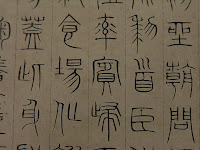 坐朝問
黎首臣伏
率賓歸王
食場化
蓋此身